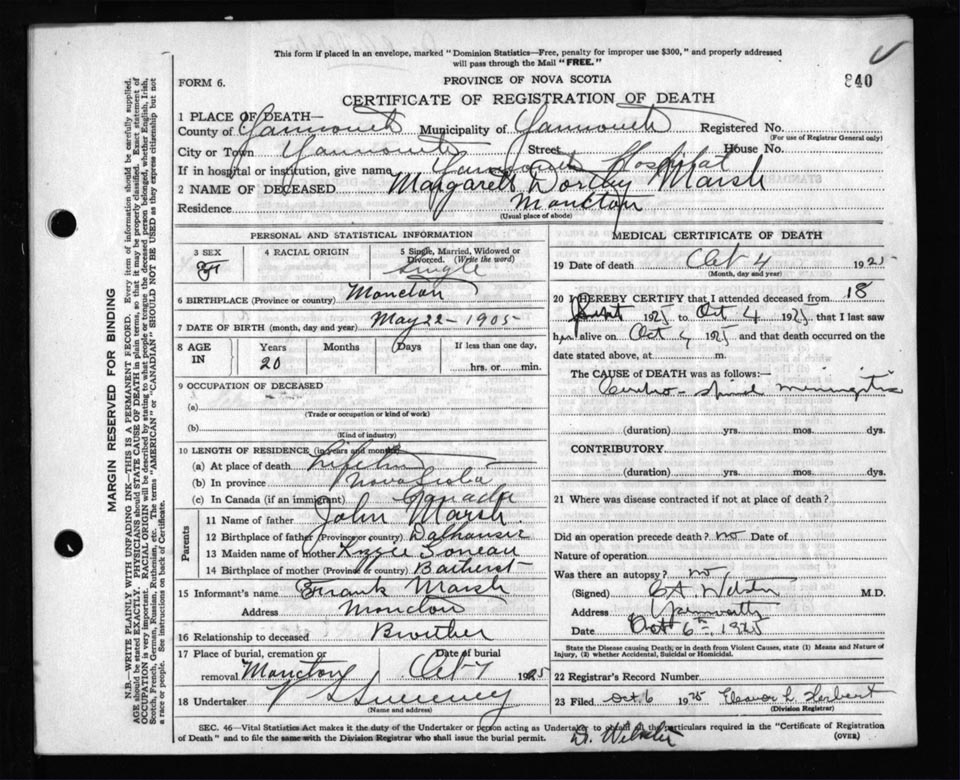 This form if placed in an envelope, marked "Dominion Statistics—Free, penalty for improper use $300," and properly addressed
will pass through the Mail "FREE."
FORM 6.
PROVINCE OF NOVA SCOTIA
840
CERTIFICATE OF REGISTRATION OF DEATH
1 PLACE OF DEATH—
County of Yarmouth Municipality of Yarmouth Registered No.
(For use of Registrar General only)
City or Town Yarmouth Street House No.
If in hospital or institution, give name Yarmouth Hospital
2 NAME OF DECEASED Margaret Marsh
Residence Moncton
(Usual place of abode)
PERSONAL AND STATISTICAL INFORMATION
3 SEX
F
4 RACIAL ORIGIN
5 Single, Married, Widowed or
Divorced. (Write the word)
Single
6 BIRTHPLACE (Province or country) Moncton
7 DATE OF BIRTH (month, day and year) May 22 - 1905
8 AGE
IN
Years
20
Months
Days
If less than one day,
hrs. or min.
9 OCCUPATION OF DECEASED
(a)
(Trade or occupation or kind of work)
(b)
(Kind of industry)
10 LENGTH OF RESIDENCE (in years and months)
(a) At place of death
(b) In province Nova Scotia
(c) In Canada (if an immigrant) Canada
Parents
11 Name of father John Marsh.
12 Birthplace of father (Province or country) Dalhousie
13 Maiden name of mother
14 Birthplace of mother (Province or country) Bathurst
15 Informant's name Frank Marsh
Address Moncton
16 Relationship to deceased Brother
17 Place of burial, cremation or
removal Moncton
Date of burial
Oct 7 1925
18 Undertaker V Sweeney
(Name and address)
MEDICAL CERTIFICATE OF DEATH
19 Date of death Oct 4 1925
(Month, day and year)
20 I HEREBY CERTIFY that I attended deceased from 18
Sept 1925 to Oct 4 1925, that I last saw
her alive on Oct 4 1925 and that death occurred on the
date stated above, at m.
The CAUSE of DEATH was as follows:—
Cerebro-spinal meningitis
(duration) yrs. mos. dys.
CONTRIBUTORY
(duration) yrs. mos. dys.
21 Where was disease contracted if not at place of death?
Did an operation precede death? no Date of
Nature of operation
Was there an autopsy? no
(Signed) Webster M.D.
Address Yarmouth
Date Oct 6th, 1925
State the Disease causing Death; or in death from Violent Causes, state (1) Means and Nature of
Injury, (2) whether Accidental, Suicidal or Homicidal.
22 Registrar's Record Number
23 Filed Oct. 6 1925 L. Herbert
(Division Registrar)
SEC. 46—Vital Statistics Act makes it the duty of the Undertaker or person acting as Undertaker to obtain all the particulars required in the "Certificate of Registration
of Death" and to file the same with the Division Registrar who shall issue the burial permit.
Dr. Webster
(OVER)
MARGIN RESERVED FOR BINDING
N.B.—WRITE PLAINLY WITH UNFADING INK—THIS IS A PERMANENT RECORD. Every item of information should be carefully supplied.
AGE should be stated EXACTLY. PHYSICIANS should STATE CAUSE OF DEATH in plain terms, so that it may be properly classified. Exact statement of
OCCUPATION is very important. RACIAL ORIGIN will be described by stating to what people or tongue the deceased person belonged, whether English, Irish,
Scotch, French, German, Russian, Ruthenian, etc. The terms "AMERICAN" or "CANADIAN" SHOULD NOT BE USED as they express citizenship but not
a race or people. See instructions on back of Certificate.